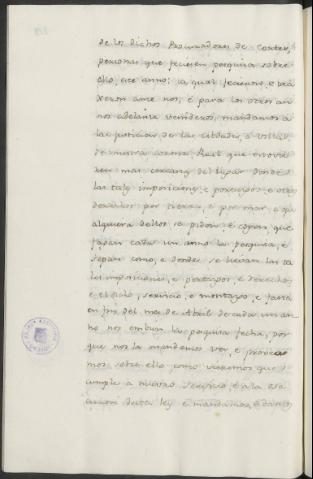 de los dichos Procuradores de Cortes,
personas que ficiesen pesquisa sobre
ello, este anno: la qual ficieron, e tra
xeron ante nos, e para los otros an
nos adelante venideros, mandamos a
las justicias de las cibdades, e villas,
de nuestra corona Real que estovie
ren mas cercanas del lugar donde
las tales imposiciones, e portazgos, e otros
derechos por tierra, e por mar, e qual
alquiera dellos se piden e cojan, que
fagan cada un anno la pesquisa, e
sepan como, e donde se llevan las ta
les imposiciones, e portazgos, e derechos
e servicio, e montazgo, e fasta
en fin del mes de Abril de cada un an
no nos embien la pesquisa fecha, por
que nos la mandemos ver, e provea
mos sobre ello como vieremos que
cumple a nuestro servicio, e a la exe
cucion desta ley e mandamos, e damos